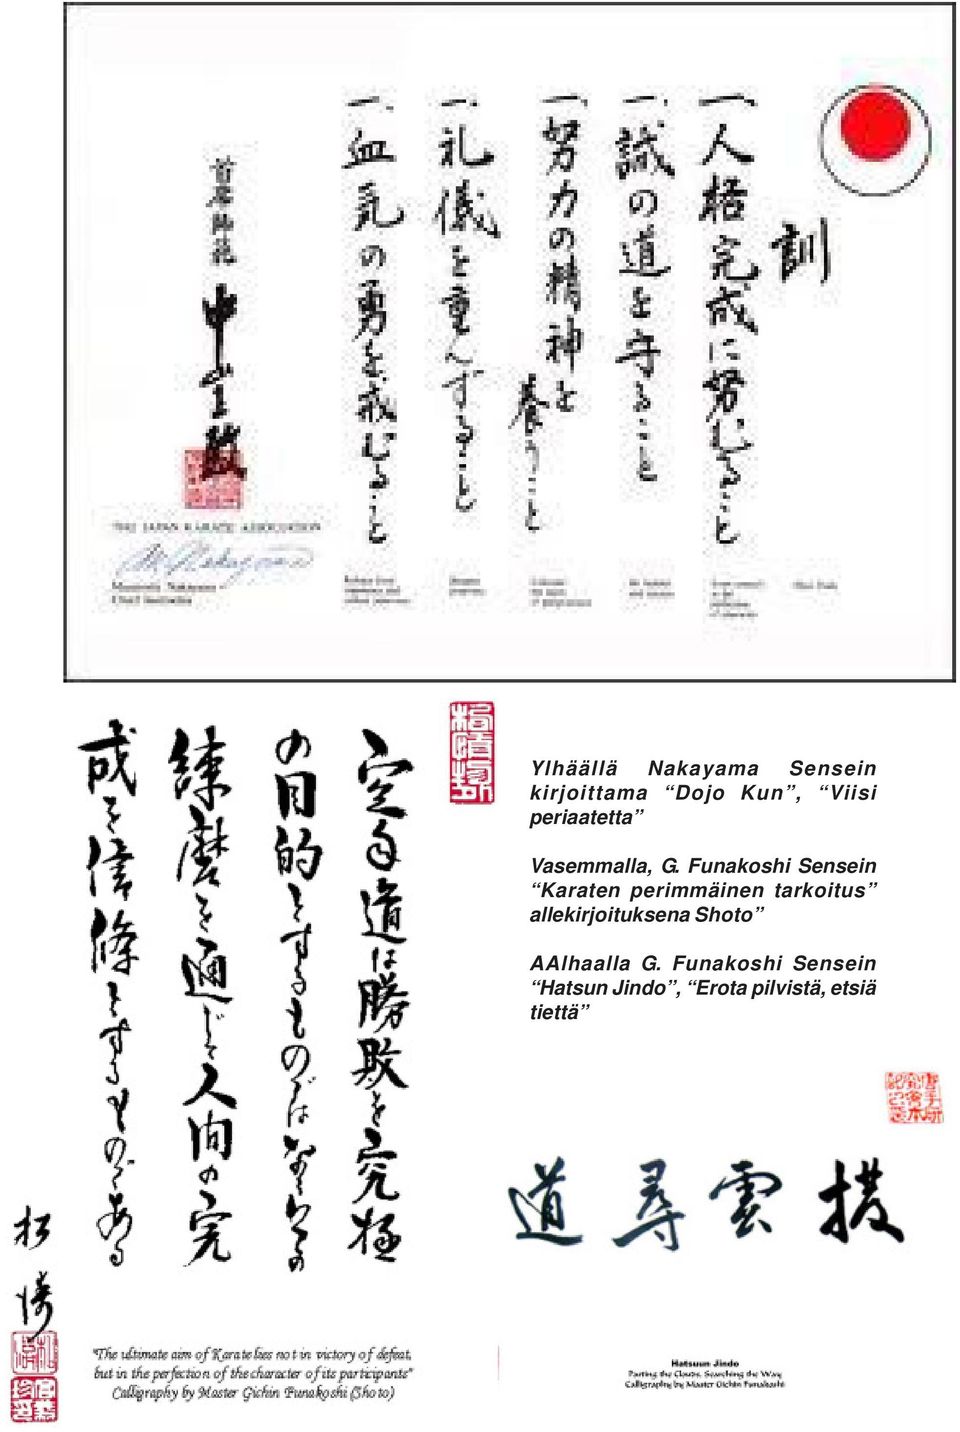 訓
一、人格完成に努むること
一、誠の道を守ること
一、努力の精神を養うこと
一、礼儀を重んずること
一、血気の勇を戒むること
首席師範
中山正敏
THE JAPAN KARATE ASSOCIATION
M. Nakayama
Masatoshi Nakayama
Chief Instructor
空手道は勝敗を究極
の目的とするものではなくその
練磨を通じて人間の完
成を信條とするものである
松涛
Ylhäällä Nakayama Sensein
kirjoittama “Dojo Kun”, “Viisi
periaatetta”
Vasemmalla, G. Funakoshi Sensein
“Karaten perimmäinen tarkoitus”
allekirjoituksena Shoto”
AAlhaalla G. Funakoshi Sensein
“Hatsun Jindo”, “Erota pilvistä, etsiä
tiettä”
道尋雲撥
"The ultimate aim of Karate laes not in victory of defeat,
but in the perfection of the character of its participants"
Calligraphy by Master Gichin Funakoshi (Shoto)
Hatsuun Jindo
Parting the Clouds, Searching the Way
Calligraphy by Master Gichin Funakoshi